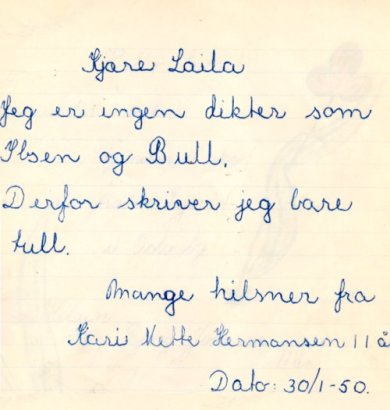 Kjære Laila
Jeg er ingen dikter som
Ibsen og Bull.
Derfor skriver jeg bare
tull.
Mange hilsner fra
Kari Mette Hermansen 11 å
Dato: 30/1-50.